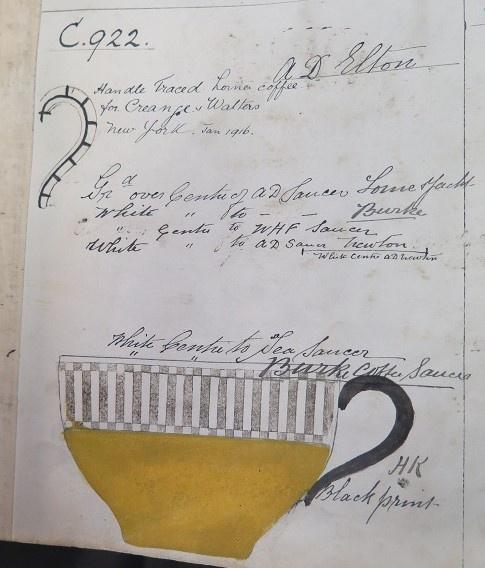 C.922.
A D Elton
Handle Traced coffee
for Creange & Walters
New York. Jan 1916.
Grd over Centre of AD Saucer Lome & Yacht
White " to - - Burke
" Centre to WHF Saucer
White " to AD Saucer Newton.
White Centre AD Newton
White Centre to Tea Saucer
Burke Coffee Saucer
HK
Black print